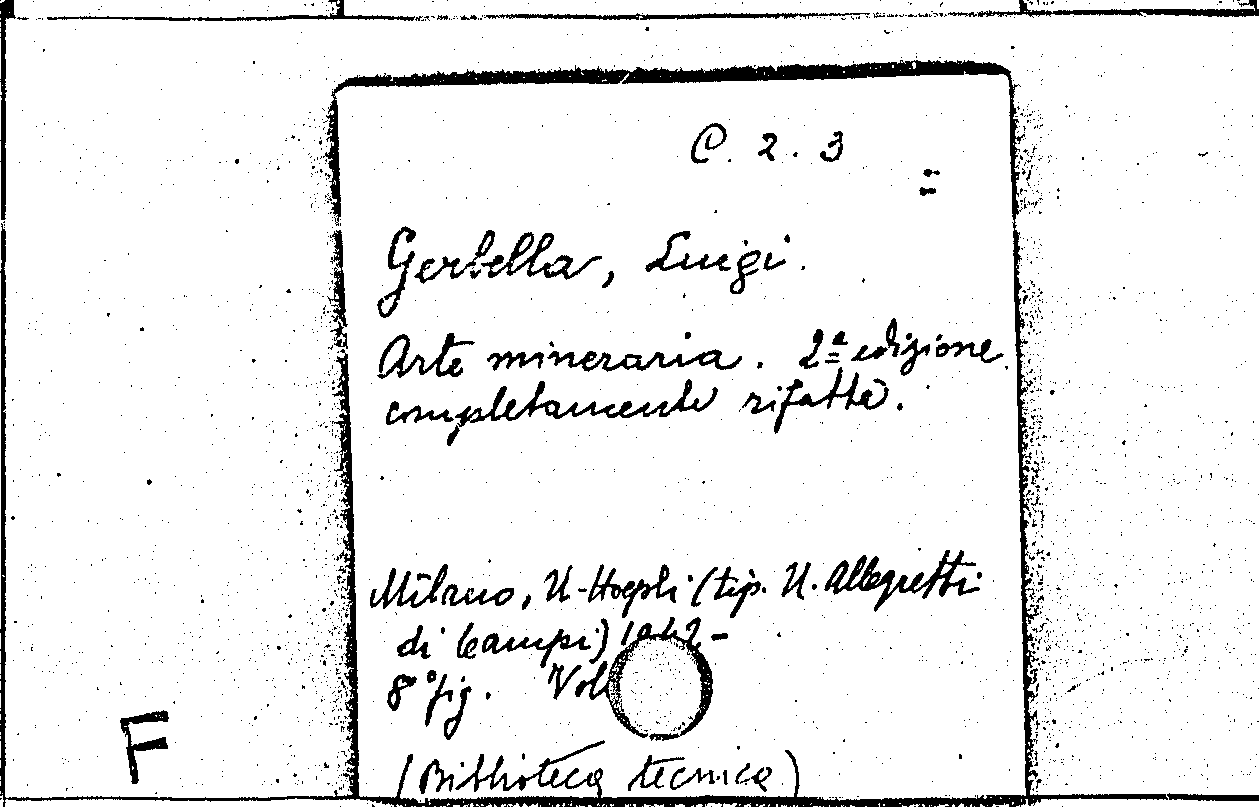 C. 2. 3
=
Gerbella, Luigi.
Arte mineraria. 2ª edizione
completamente rifatta.
Milano, U. Hoepli (tip. U. Allegretti
di Campi) 1942-
8° fig. Vol
F
(Biblioteca tecnica)